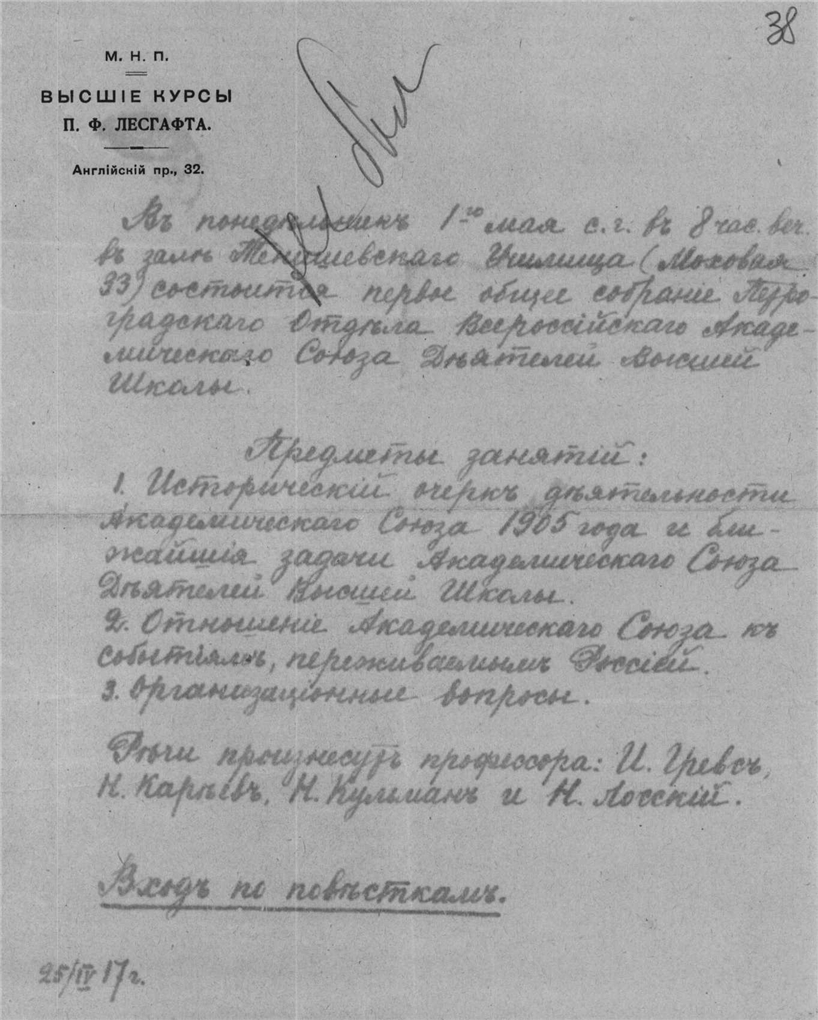 38
М. Н. П.
ВЫСШІЕ КУРСЫ
П. Ф. ЛЕСГАФТА.
Англійскій пр., 32.
Въ понедѣльникъ 1го мая с.г. въ 8 час. веч.
въ залѣ Тенишевскаго Училища (Моховая
33) состоится первое общее собраніе Петро-
градскаго Отдѣла Всероссійскаго Акаде-
мическаго Союза Дѣятелей Высшей
Школы.
Предметы занятій:
1. Историческій очеркъ дѣятельности
Академическаго Союза 1905 года и бли-
жайшія задачи Академическаго Союза
Дѣятелей Высшей Школы.
2. Отношеніе Академическаго Союза къ
событіямъ, переживаемымъ Россіей.
3. Организаціонные вопросы.
Рѣчи произнесутъ профессора: И. Гревсъ,
Н. Карѣевъ, Н. Кульманъ и Н. Лосскій.
Входъ по повѣсткамъ.
25/IV 17 г.